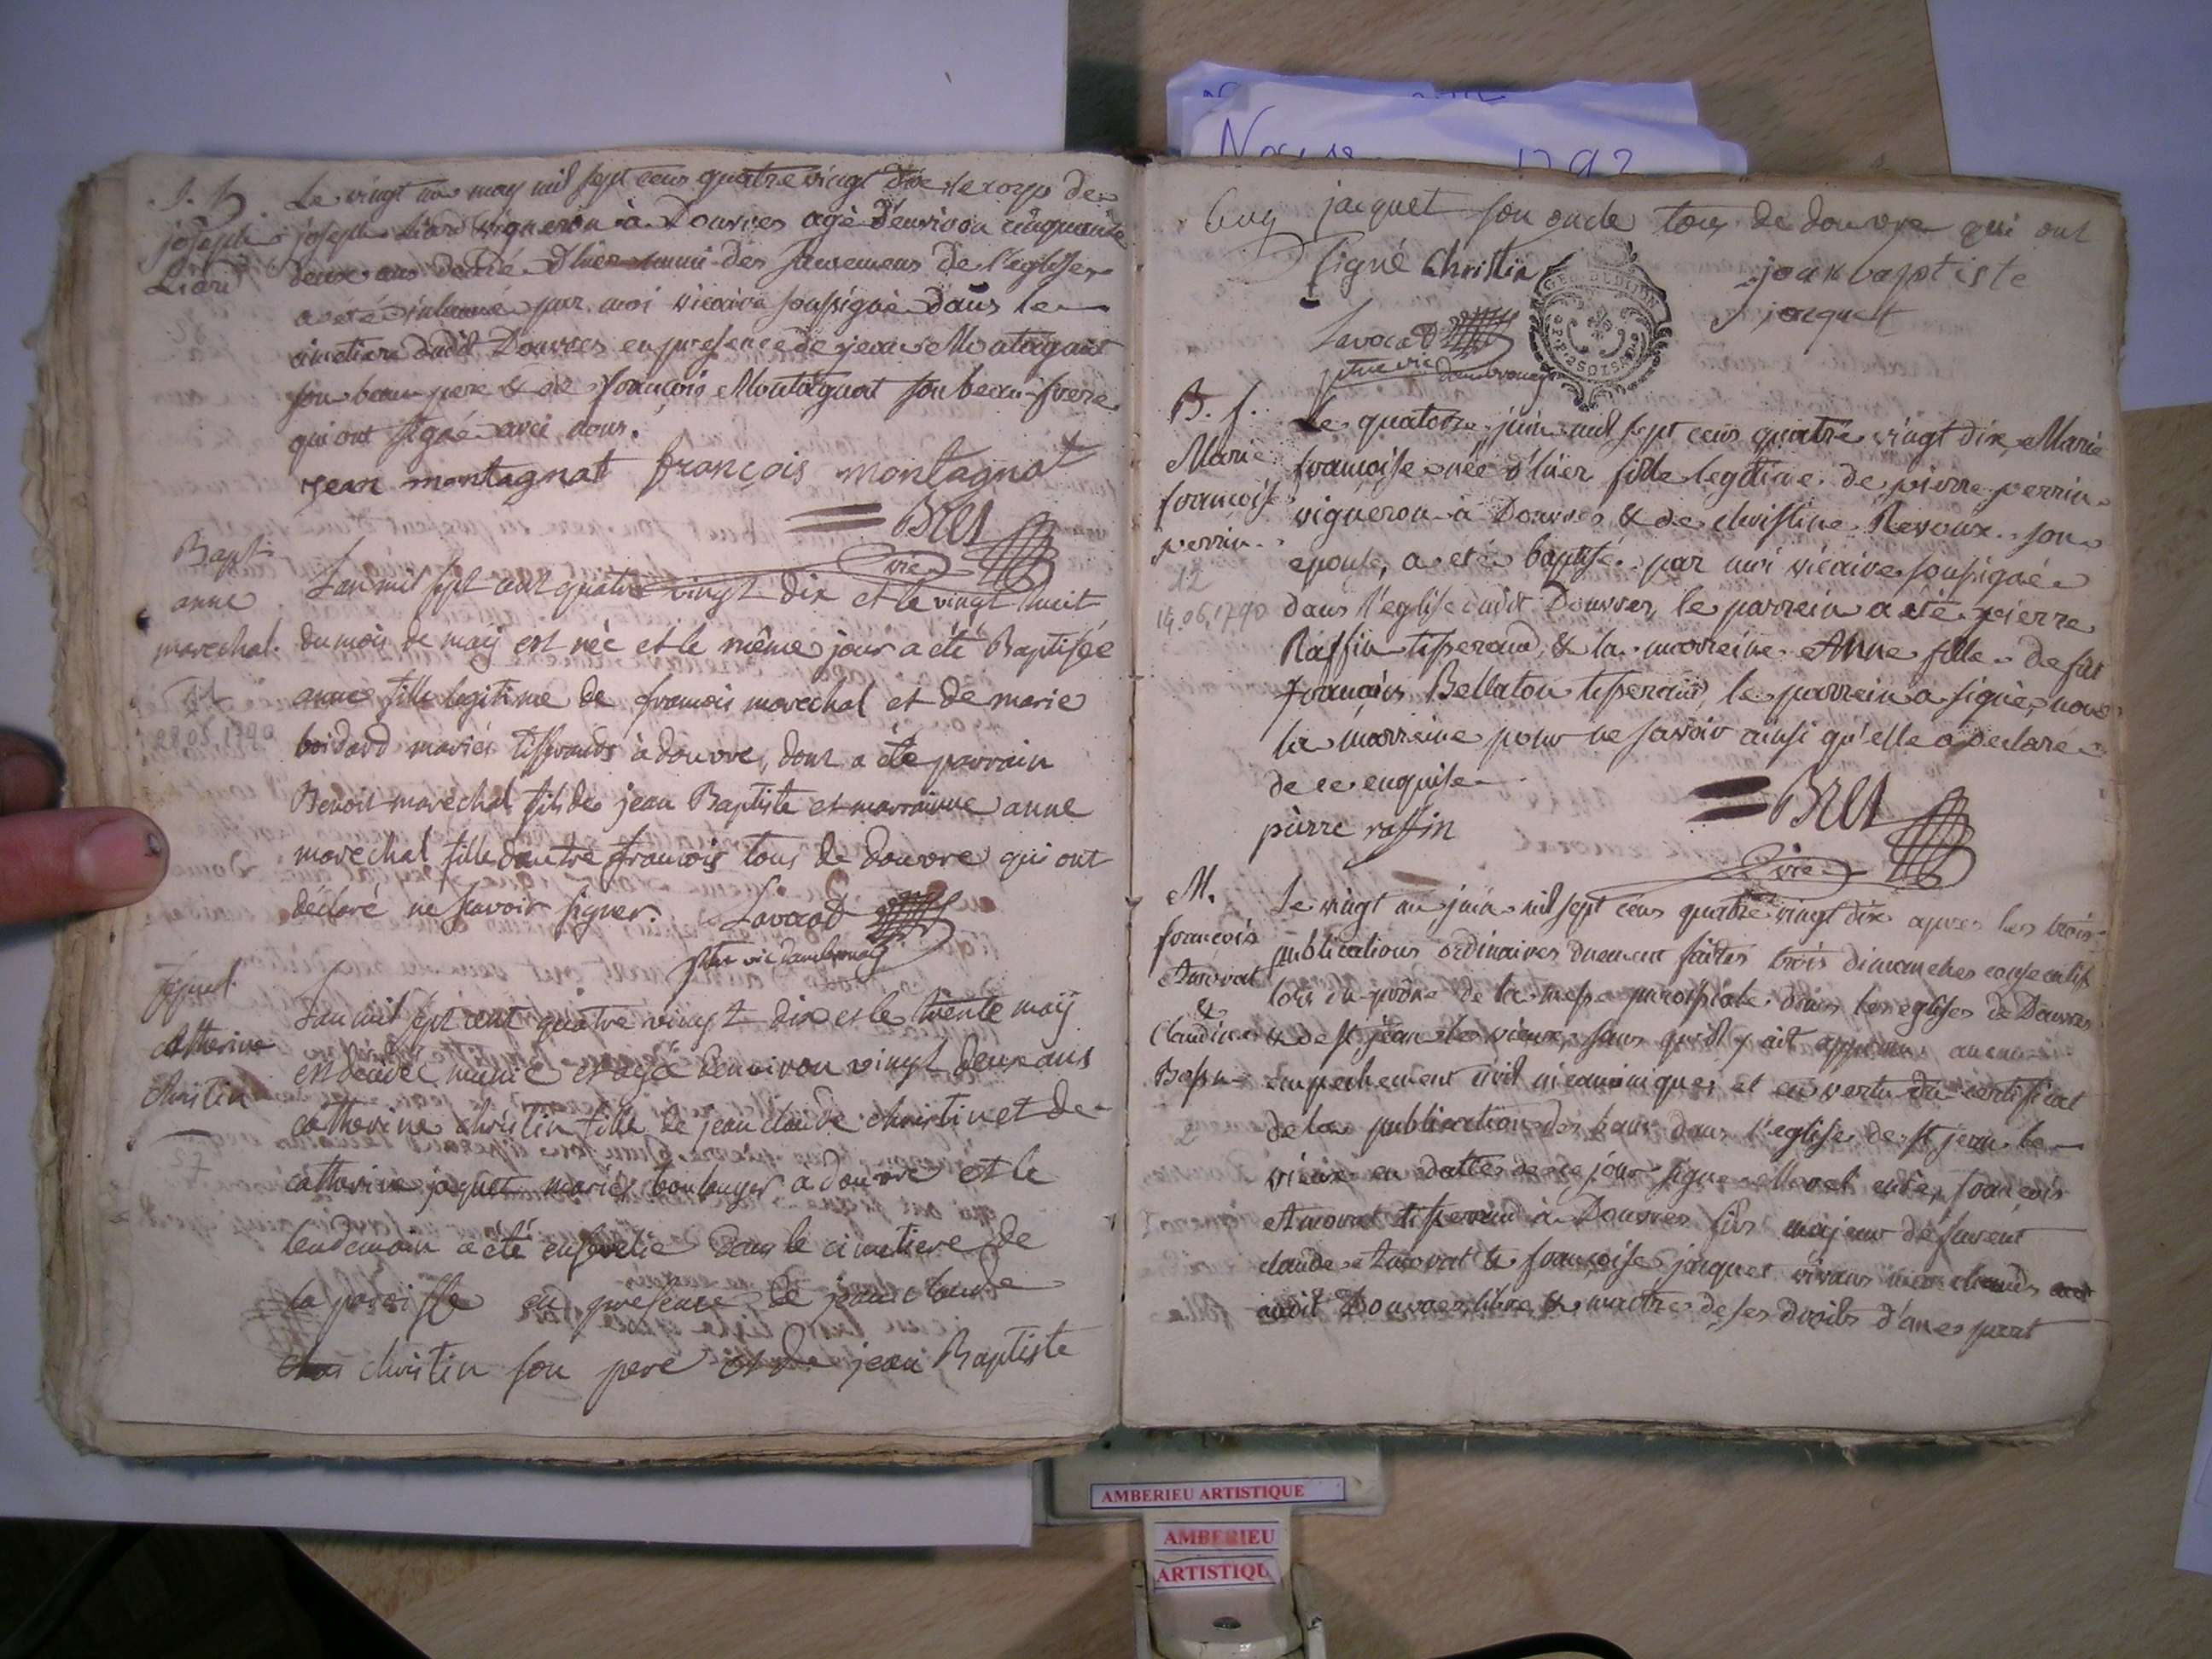 S. h
joseph
Liard
Le vingt un may mil sept cens quatre vingt dix le corps de
joseph Liard vigneron à Douvres agé d'environ cinquante
deux ans decedé d'hier muni des sacremens de l'eglise
a eté inhumé par moi vicaire soussigné dans le
cimetiere dudit Douvres en presence de jean Montagnat
son beau pere & de françois Montagnat son beau frere
qui ont signé avec nous.
jean montagnat françois montagnat
Bret
vic
Bapt
anne
marechal.
28.05.1790
L'an mil sept cent quatre vingt dix et le vingt huit
du mois de maÿ est née et le même jour a été Baptisée
anne fille legitime de francois marechal et de marie
boidard mariés tisserands à douvre, dont a été parrain
Benoit marechal fils de jean Baptiste et marrainne anne
marechal fille dautre francois tous de douvre qui ont
déclaré ne savoir signer. Lavocat
ptre vic dambronaÿ
sepul.
catherine
christin
L'an mil sept cent quatre vingt dix et le trente maÿ
est decedée munie et agée denviron vingt deux ans
catherine christin fille de jean claude christin et de
catherine jaquet mariés boulanger a douvre et le
lendemain a été ensevelie dans le cimetiere de
la paroisse en presence de jean claude
christin son pere et de jean Baptiste
Guy jacquet son oncle tous de douvre qui ont
signé Christin
jean baptiste
jacquet
GEN. DE DIJON
P.P. 2 SOLS
Lavocat
ptre vic dambronaÿ
B. f.
Marie
francoise
perrin
12
14.06.1790
Le quatorze juin mil sept cens quatre vingt dix, Marie
francoise née d'hier fille legitime de pierre perrin
vigneron à Douvres & de christine Revoux son
epouse, a eté baptisé par moi vicaire soussigné
dans l'eglise dudit Douvres, le parrein a été pierre
Raffin tisserand, & la marreine Anne fille de fût
françois Bellaton tisserand, le parrein a signé, non
la marreine pour ne savoir ainsi qu'elle a declaré
de ce enquise
pierre raffin
Bret
vic
M.
francois
Amorat
&
Claudine
Le vingt un juin mil sept cens quatre vingt dix apres les trois
publications ordinaires duement faites trois dimanches consecutifs
lors du prône de la messe paroissiale dans les eglises de Douvres
& de st jean le vieux, sans qu'il y ait apparu aucun
empechement civil ni canonique, et en vertu du certificat
de la publication des bans dans l'eglise de st jean le
vieux en datte de ce jour signé curé, francois
Amorat tisserand à Douvres fils majeur de
claude Amorat & françoise jacquet vivans marchands
audit Douvres, libre & maitre de ses droits d'une part
AMBERIEU ARTISTIQUE
AMBERIEU
ARTISTIQU